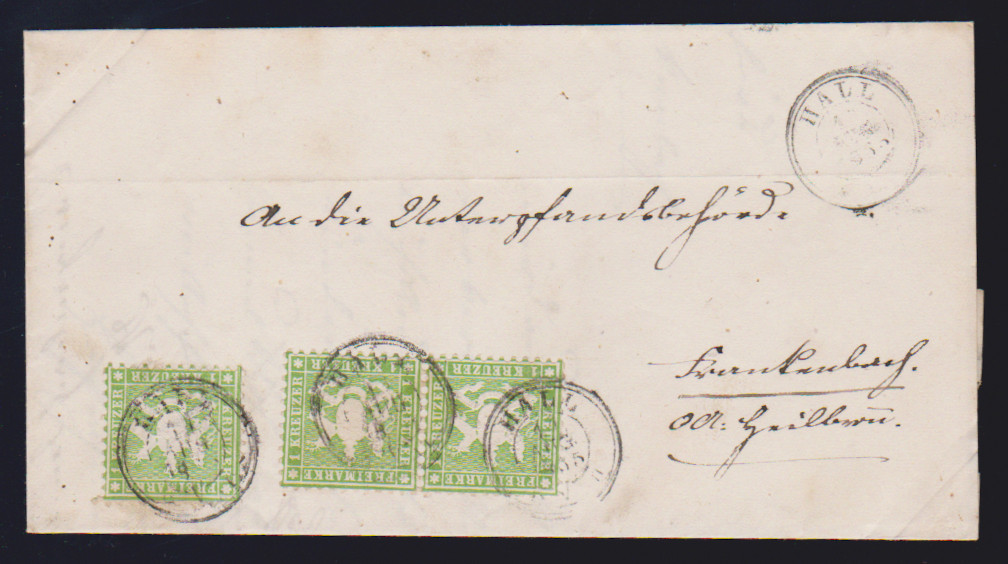 HALL
An die Unterpfandsbehörde
Frankenbach.
OA: Heilbronn.
1 KREUZER
FREIMARKE
1 KREUZER
FREIMARKE
1 KREUZER
FREIMARKE
HALL
HALL
HALL